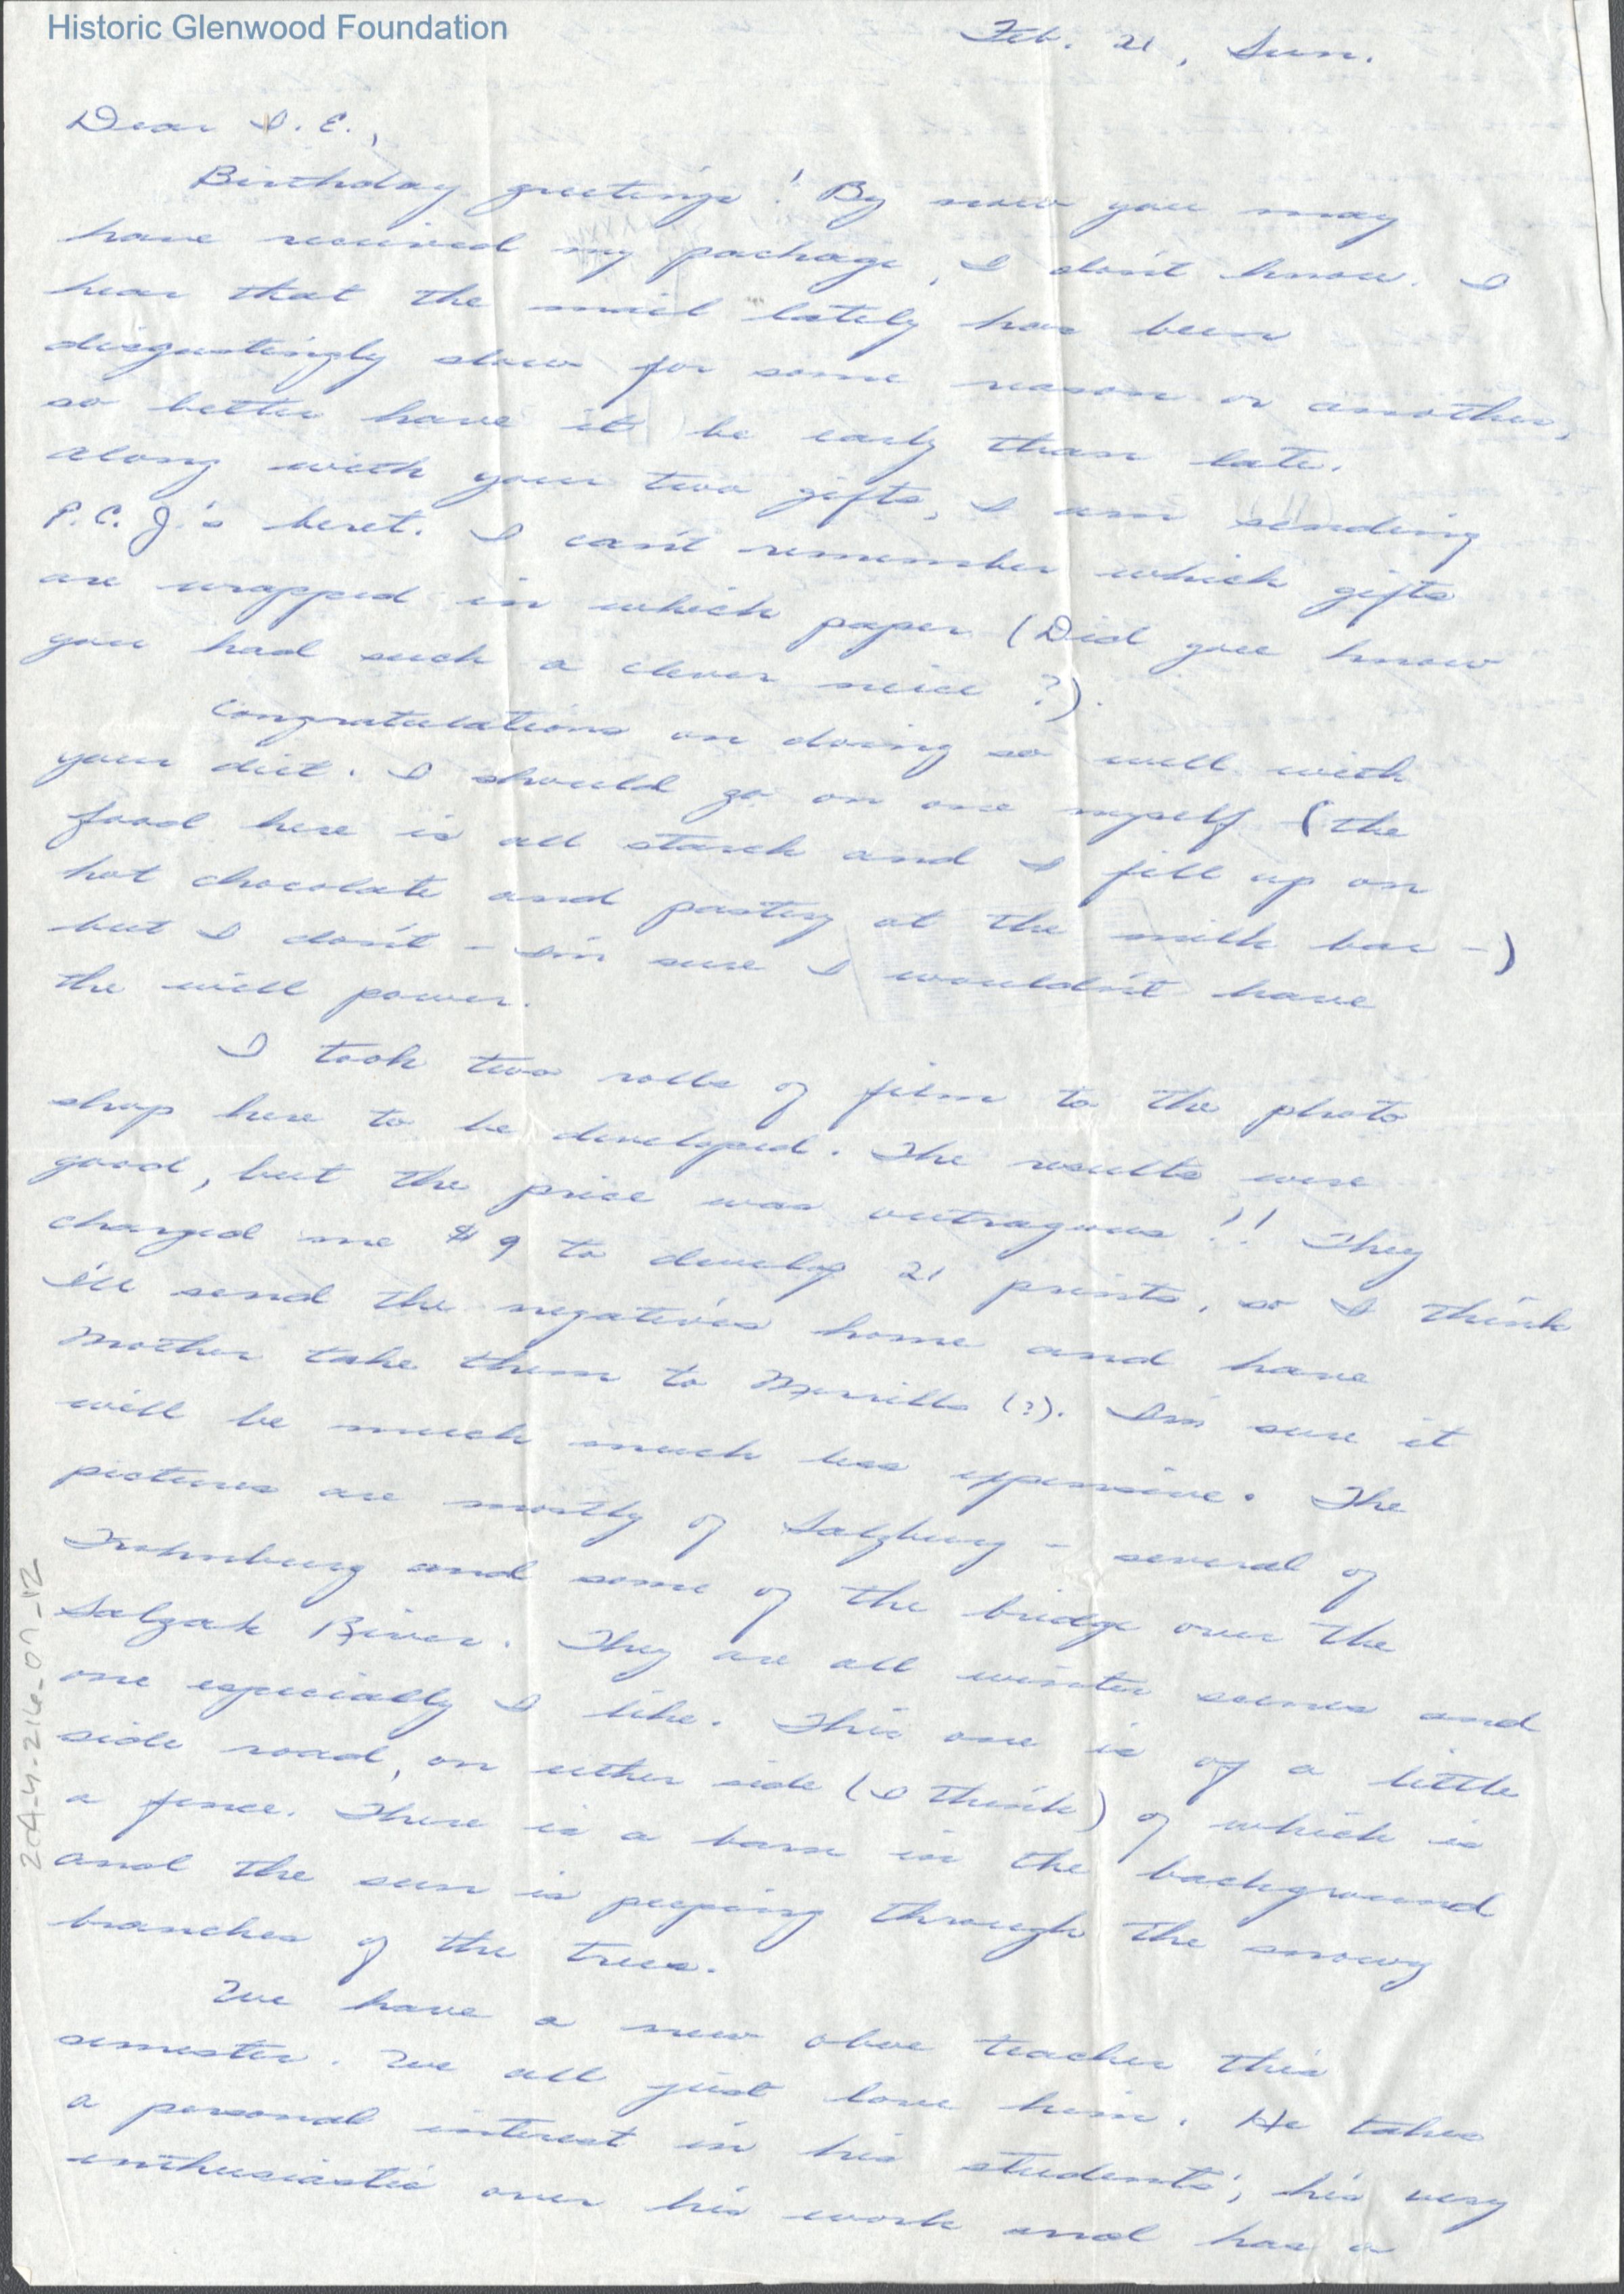 Historic Glenwood Foundation
Feb. 21, Sun.
Dear I. E.,
Birthday greetings! By now you may
have received my package, I don't know. I
hear that the mail lately has been
disgustingly slow for some reason or another,
so better have it be early than late.
Along with your two gifts, I am sending
P.C.J.'s beret. I can't remember which gifts
are wrapped in which paper (Did you know
you had such a clever neice?).
Congratulations on doing so well with
your diet. I should go on one myself (the
food here is all starch and I fill up on
hot chocolate and pastry at the milk bar -)
but I don't - I'm sure I wouldn't have
the will power.
I took two rolls of film to the photo
shop here to be developed. The results were
good, but the price was outragous!! They
charged me $9 to develop 21 prints, so I think
I'll send the negatives home and have
Mother take them to Merrills (?). I'm sure it
will be much much less expensive. The
pictures are mostly of Salzburg - several of
Frohnburg and some of the bridge over the
Salzak River. They are all winter scenes and
one especially I like. This one is of a little
side road, on either side (I think) of which is
a fence. There is a barn in the background
and the sun is peeping through the snowy
branches of the trees.
We have a new oboe teacher this
semester. We all just love him. He takes
a personal interest in his students; he's very
enthusiastic over his work and has a
204-4-216-07-12